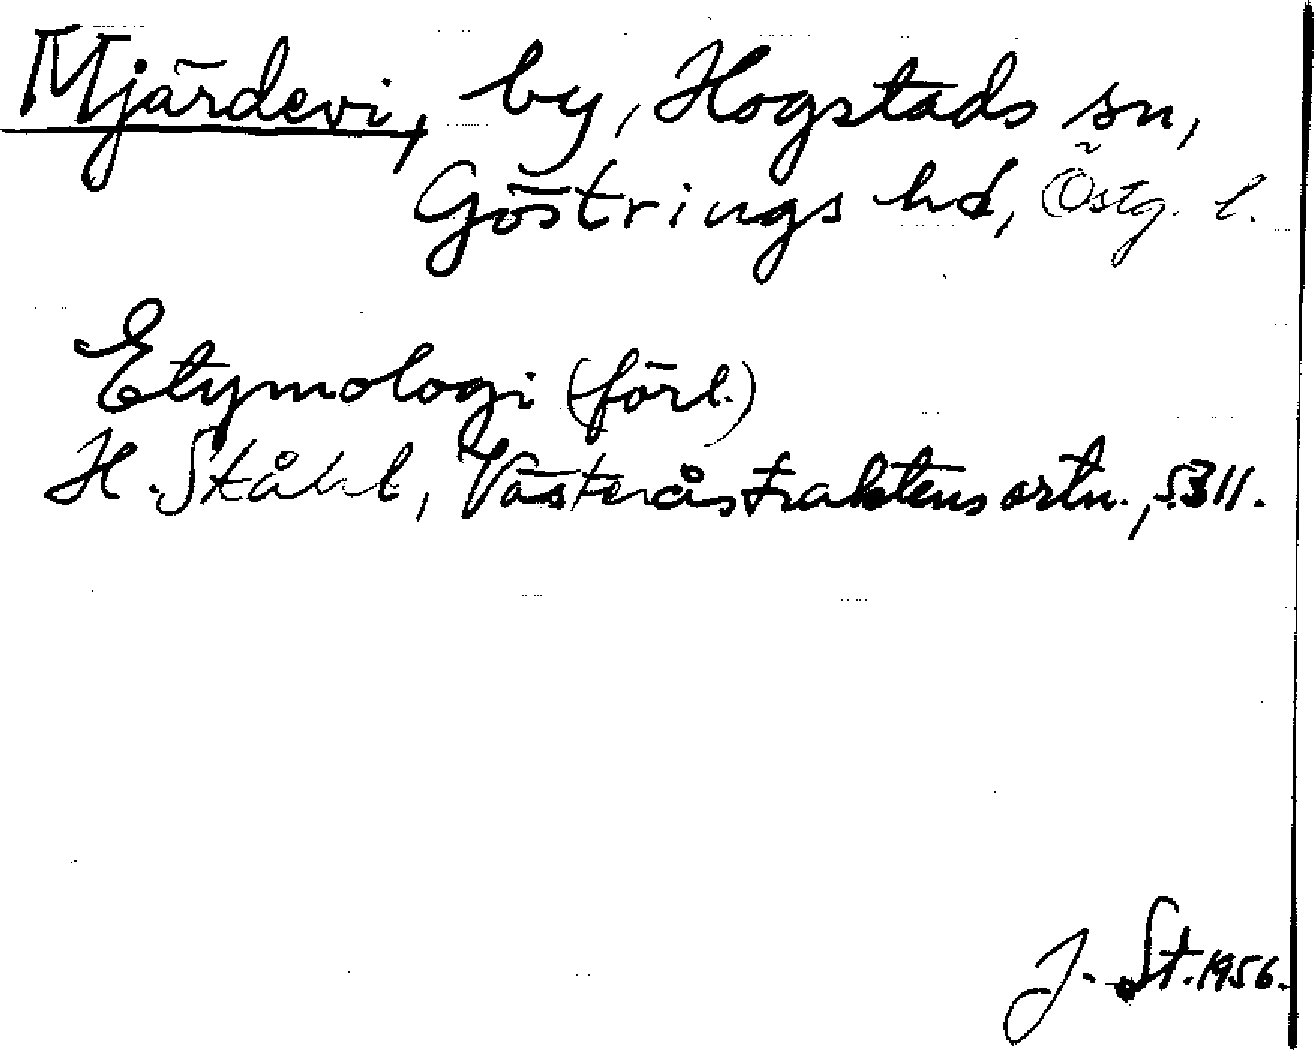 Mjärdevi, by, Hogstads sn,
Göstrings hd, Östg. l.
Etymologi (förl.)
H. Ståhl, Västeråstraktens ortn., s. 311.
J. St. 1956.